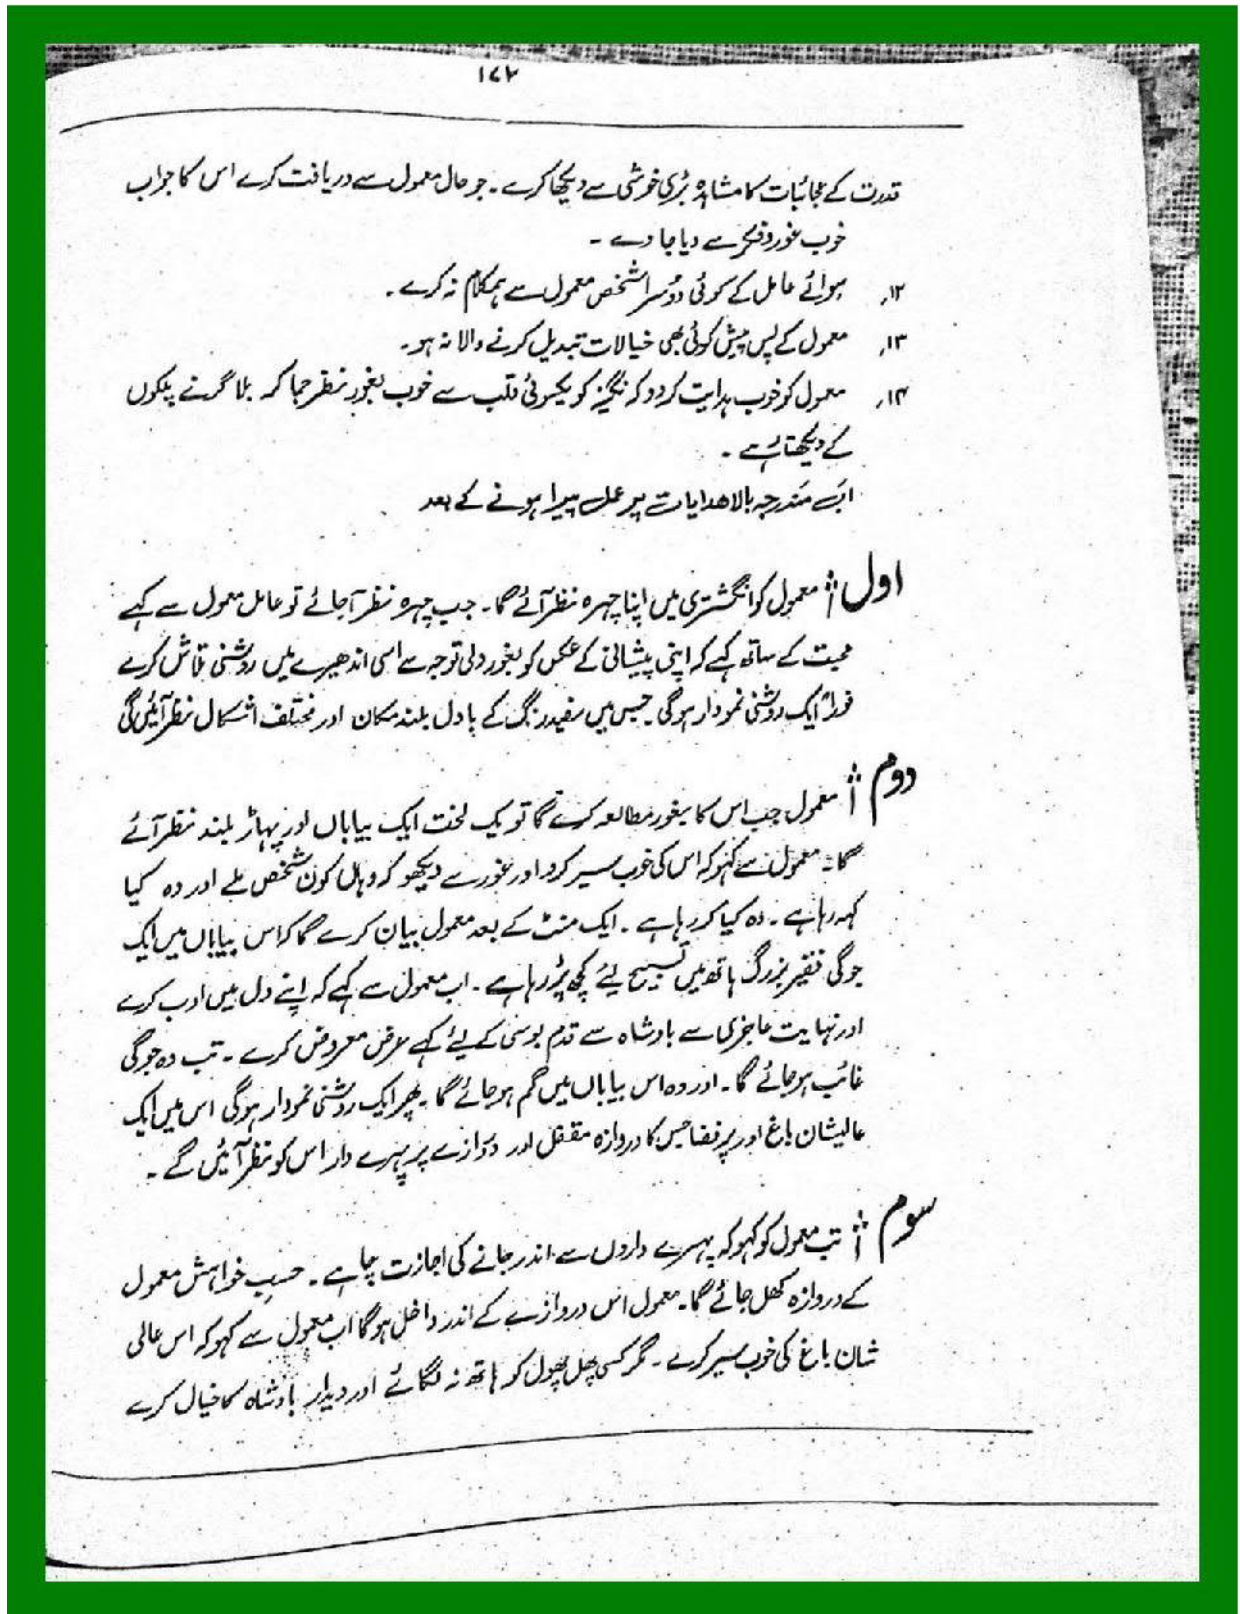 ۱۷۲
قدرت کے عجائبات کا مشاہدہ بڑی خوشی سے دیکھا کرے۔ جو حال معمول سے دریافت کرے اس کا جواب
خوب غور و فکر سے دیا جاوے ۔
۱۲, سوائے عامل کے کوئی دوسرا شخص معمول سے ہمکلام نہ کرے۔
۱۳, معمول کے پس پیش کوئی بھی خیالات تبدیل کرنے والا نہ ہو۔
۱۴, معمول کو خوب ہدایت کر دو کہ نگینہ کو یکسوئی قلب سے خوب بغور نظر جما کر بلا گرنے پلکوں
کے دیکھتا رہے ۔
اب مندرجہ بالا ھدایات پر عمل پیرا ہونے کے بعد
اول معمول کو انگشتری میں اپنا چہرہ نظر آئے گا۔ جب چہرہ نظر آجائے تو عامل معمول سے کہے
محبت کے ساتھ کہے کہ اپنی پیشانی کے عکس کو بغور دلی توجہ سے اسی اندھیرے میں روشنی تلاش کرے
فوراً ایک روشنی نمودار ہوگی جس میں سفید رنگ کے بادل بلند مکان اور مختلف اشکال نظر آئیں گی
دوم معمول جب اس کا بغور مطالعہ کرے گا تو یک لخت ایک بیاباں اور پہاڑ بلند نظر آئے
گا۔ معمول سے کہو کہ اس کی خوب سیر کرو اور غور سے دیکھو کہ وہاں کون شخص ملے اور وہ کیا
کہہ رہا ہے۔ وہ کیا کر رہا ہے۔ ایک منٹ کے بعد معمول بیان کرے گا کہ اس بیاباں میں ایک
جوگی فقیر بزرگ ہاتھ میں تسبیح لیئے کچھ پڑ رہا ہے۔ اب معمول سے کہے کہ اپنے دل میں ادب کرے
اور نہایت عاجزی سے بادشاہ سے قدم بوسی کے لیئے کہے عرض معروض کرے۔ تب وہ جوگی
غائب ہو جائے گا۔ اور وہ اس بیاباں میں گم ہو جائے گا۔ پھر ایک روشنی نمودار ہوگی اس میں ایک
عالیشان باغ اور پر فضا جس کا دروازہ مقفل اور دروازے پر پہرے دار اس کو نظر آئیں گے ۔
سوم تب معمول کو کہو کہ پہرے داروں سے اندر جانے کی اجازت چاہے۔ حسب خواہش معمول
کے دروازہ کھل جائے گا۔ معمول اس دروازے کے اندر داخل ہو گا اب معمول سے کہو کہ اس عالی
شان باغ کی خوب سیر کرے۔ مگر کسی پھل پھول کو ہاتھ نہ لگائے اور دیدار بادشاہ کا خیال کرے